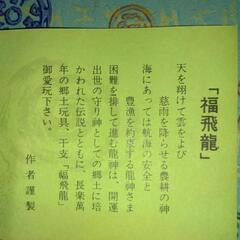 「福飛龍」
天を翔けて雲をよび
慈雨を降らせる農耕の神
海にあっては航海の安全と
豊漁を約束する龍神さま
困難を排して進む龍神は、開運
出世の守り神としての郷土に培
かわれた伝説とともに、長楽萬
年の郷土玩具、干支「福飛龍」
御愛玩下さい。
作者謹製